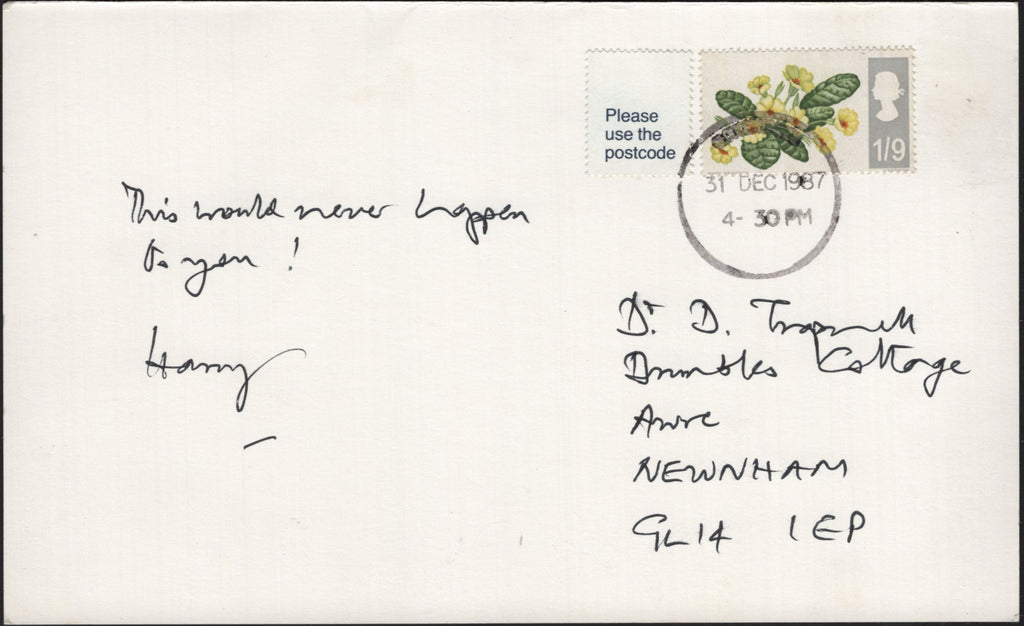 Please
use the
postcode
1/9
31 DEC 1987
4- 30 PM
This would never happen
to you!
Harry
Dr. D. Trapnell
Cottage
Awre
NEWNHAM
GL14 1EP